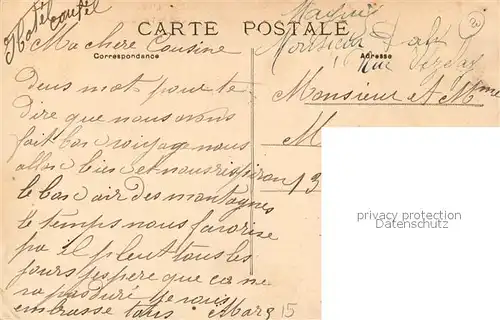 CARTE POSTALE
Correspondance
Adresse
Ma chere Cousine
Monsieur
Rue
Deus mot pour te
dire que nous avons
fait bon voiyage nous
allon bien et nous respiron
le bon air des montagnes
le temps nous favorise
pa il pleut tous les
jours jespere que ca ne
va pas duré je vous
embrasse tous Marg
Monsieur et Mme
M
13
15
20
privacy protection
Datenschutz